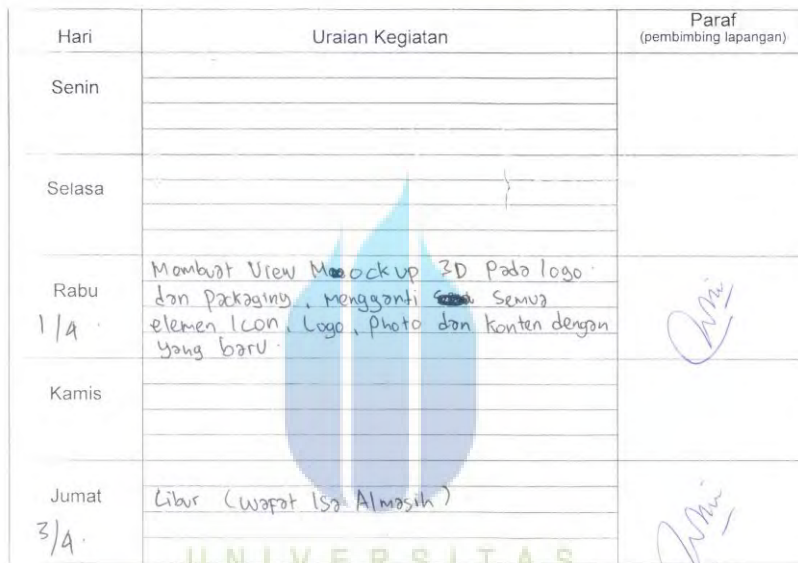 Hari Uraian Kegiatan Paraf
(pembimbing lapangan)
Senin
Selasa
Membuat View Mockup 3D Pada logo.
Rabu dan Packaging, mengganti Semua
1/4. elemen Icon, Logo, Photo dan Konten dengan
yang baru.
Kamis
Jumat Libur (Wafat Isa Almasih)
3/4.
UNIVERSITAS